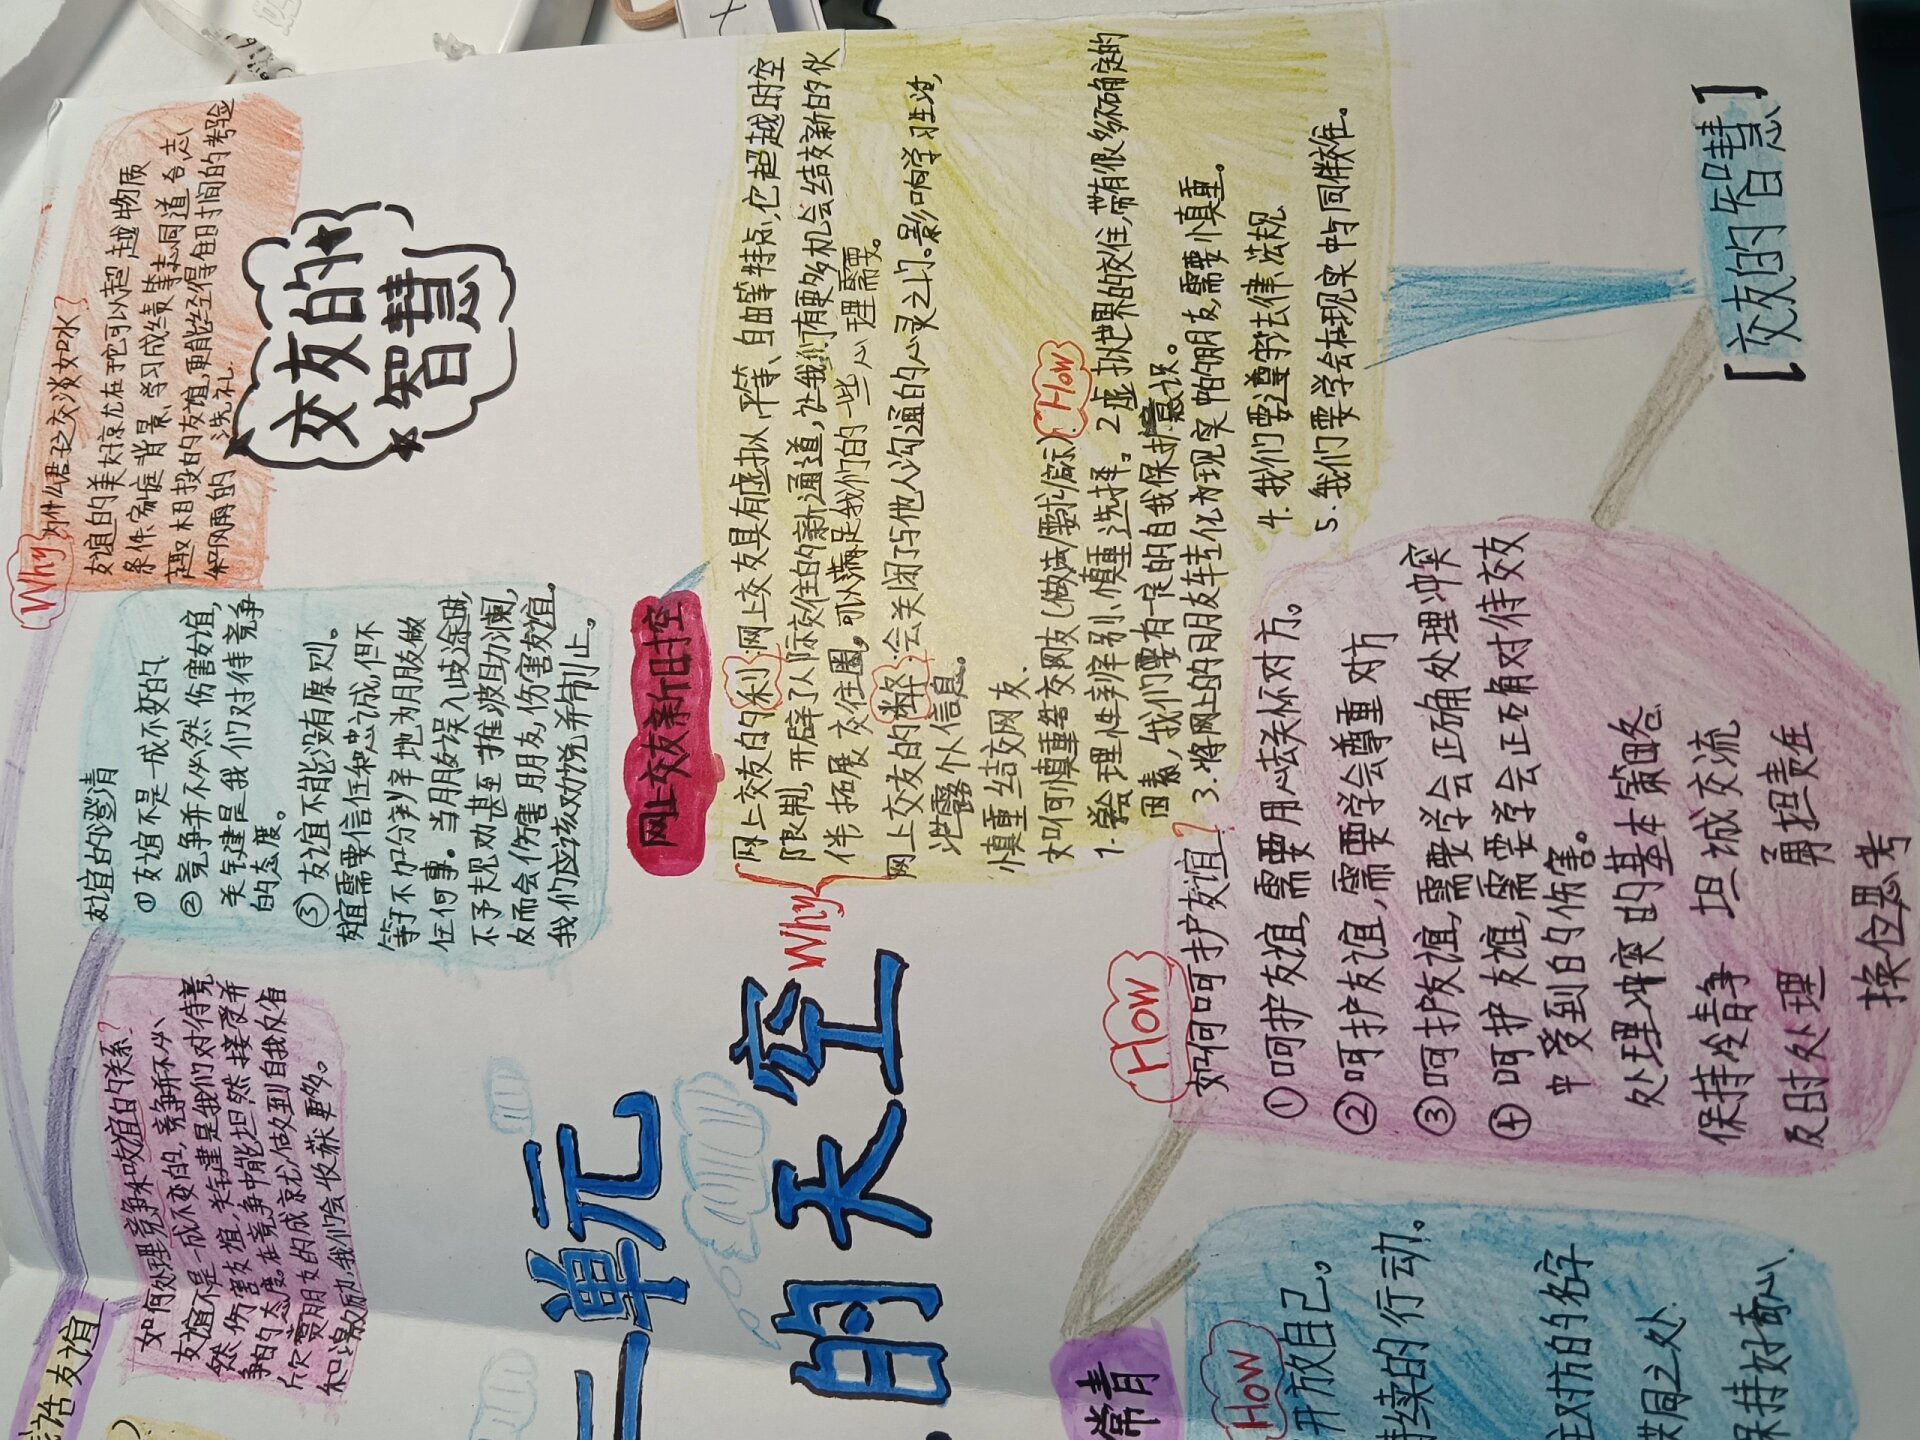 Why
为什么君子之交淡如水?
友谊的美好就在于它可以超越物质
条件、家庭背景、学习成绩等志同道合志
趣相投的友谊,更能经得住时间的考验
和风雨的洗礼
交友的
智慧
友谊的澄清
①友谊不是一成不变的
②竞争并不必然伤害友谊,
关键是我们对待竞争
的态度。
③友谊不能没有原则。
友谊需要信任和忠诚,但不
等于不加分辨地为朋友做
任何事。当朋友误入歧途时,
不予规劝甚至推波助澜,
反而会伤害朋友,伤害友谊。
我们应该劝说并制止。
如何处理竞争和友谊的关系?
友谊不是一成不变的,竞争并不必
然伤害友谊,关键是我们对待竞
争的态度。在竞争中能坦然接受并
欣赏朋友的成就,做到自我反省
和激励,我们会收获更多。
友谊
网上交友新时空
Why
网上交友的利:网上交友具有虚拟、平等、自由等特点,它超越时空
限制,开辟了人际交往的新通道,让我们有更多机会结交新的伙
伴,拓展交往圈。可以满足我们的一些心理需要。
网上交友的弊:会关闭了与他人沟通的心灵之门。影响学习生活,
泄露个人信息。
慎重结交网友
如何慎重结交网友(做法/要求/启示) How
1.学会理性辨别、慎重选择。2虚拟世界的交往,带有很多不确定的
因素,我们要有一定的自我保护意识。
3.将网上的朋友转化为现实中的朋友,需要慎重。
4.我们要遵守法律法规
5.我们要学会在现实中与同伴交往。
单元
的天空
How
如何呵护友谊?
①呵护友谊,需要用心去关怀对方。
②呵护友谊,需要学会尊重对方
③呵护友谊,需要学会正确处理冲突
④呵护友谊,需要学会正确对待交友
中受到的伤害。
处理冲突的基本策略
保持冷静 坦诚交流
及时处理 勇担责任
换位思考
[交友的智慧]
常青
How
开放自己。
持续的行动。
住对方的名字
共同之处
保持好奇心